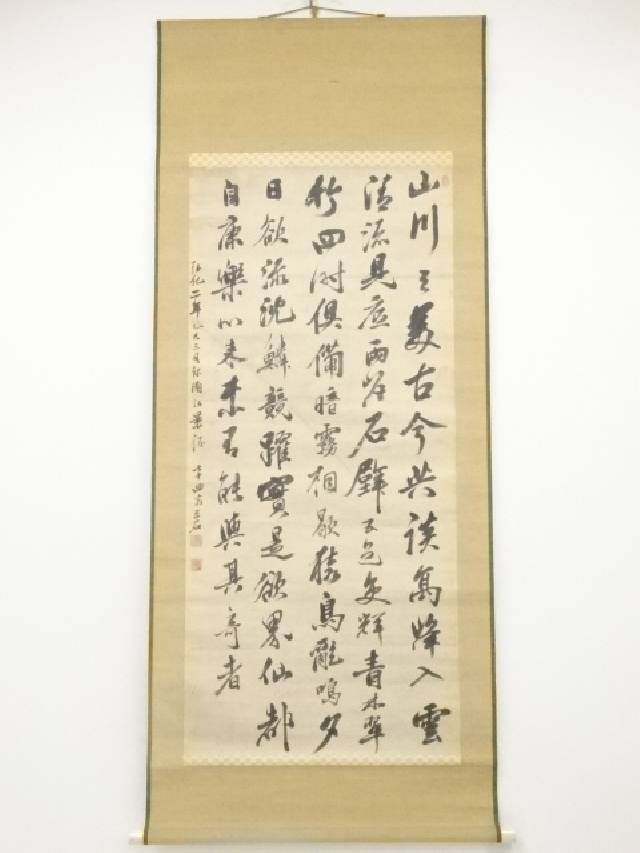 山川之美古今共談高峰入雲
清流見底兩岸石壁五色交輝青林翠
竹四時俱備暗霧相歇猿鳥亂鳴夕
日欲頹沈鱗競躍實是欲界仙都
自康樂以来未有能與其奇者
弘化二年乙巳三月